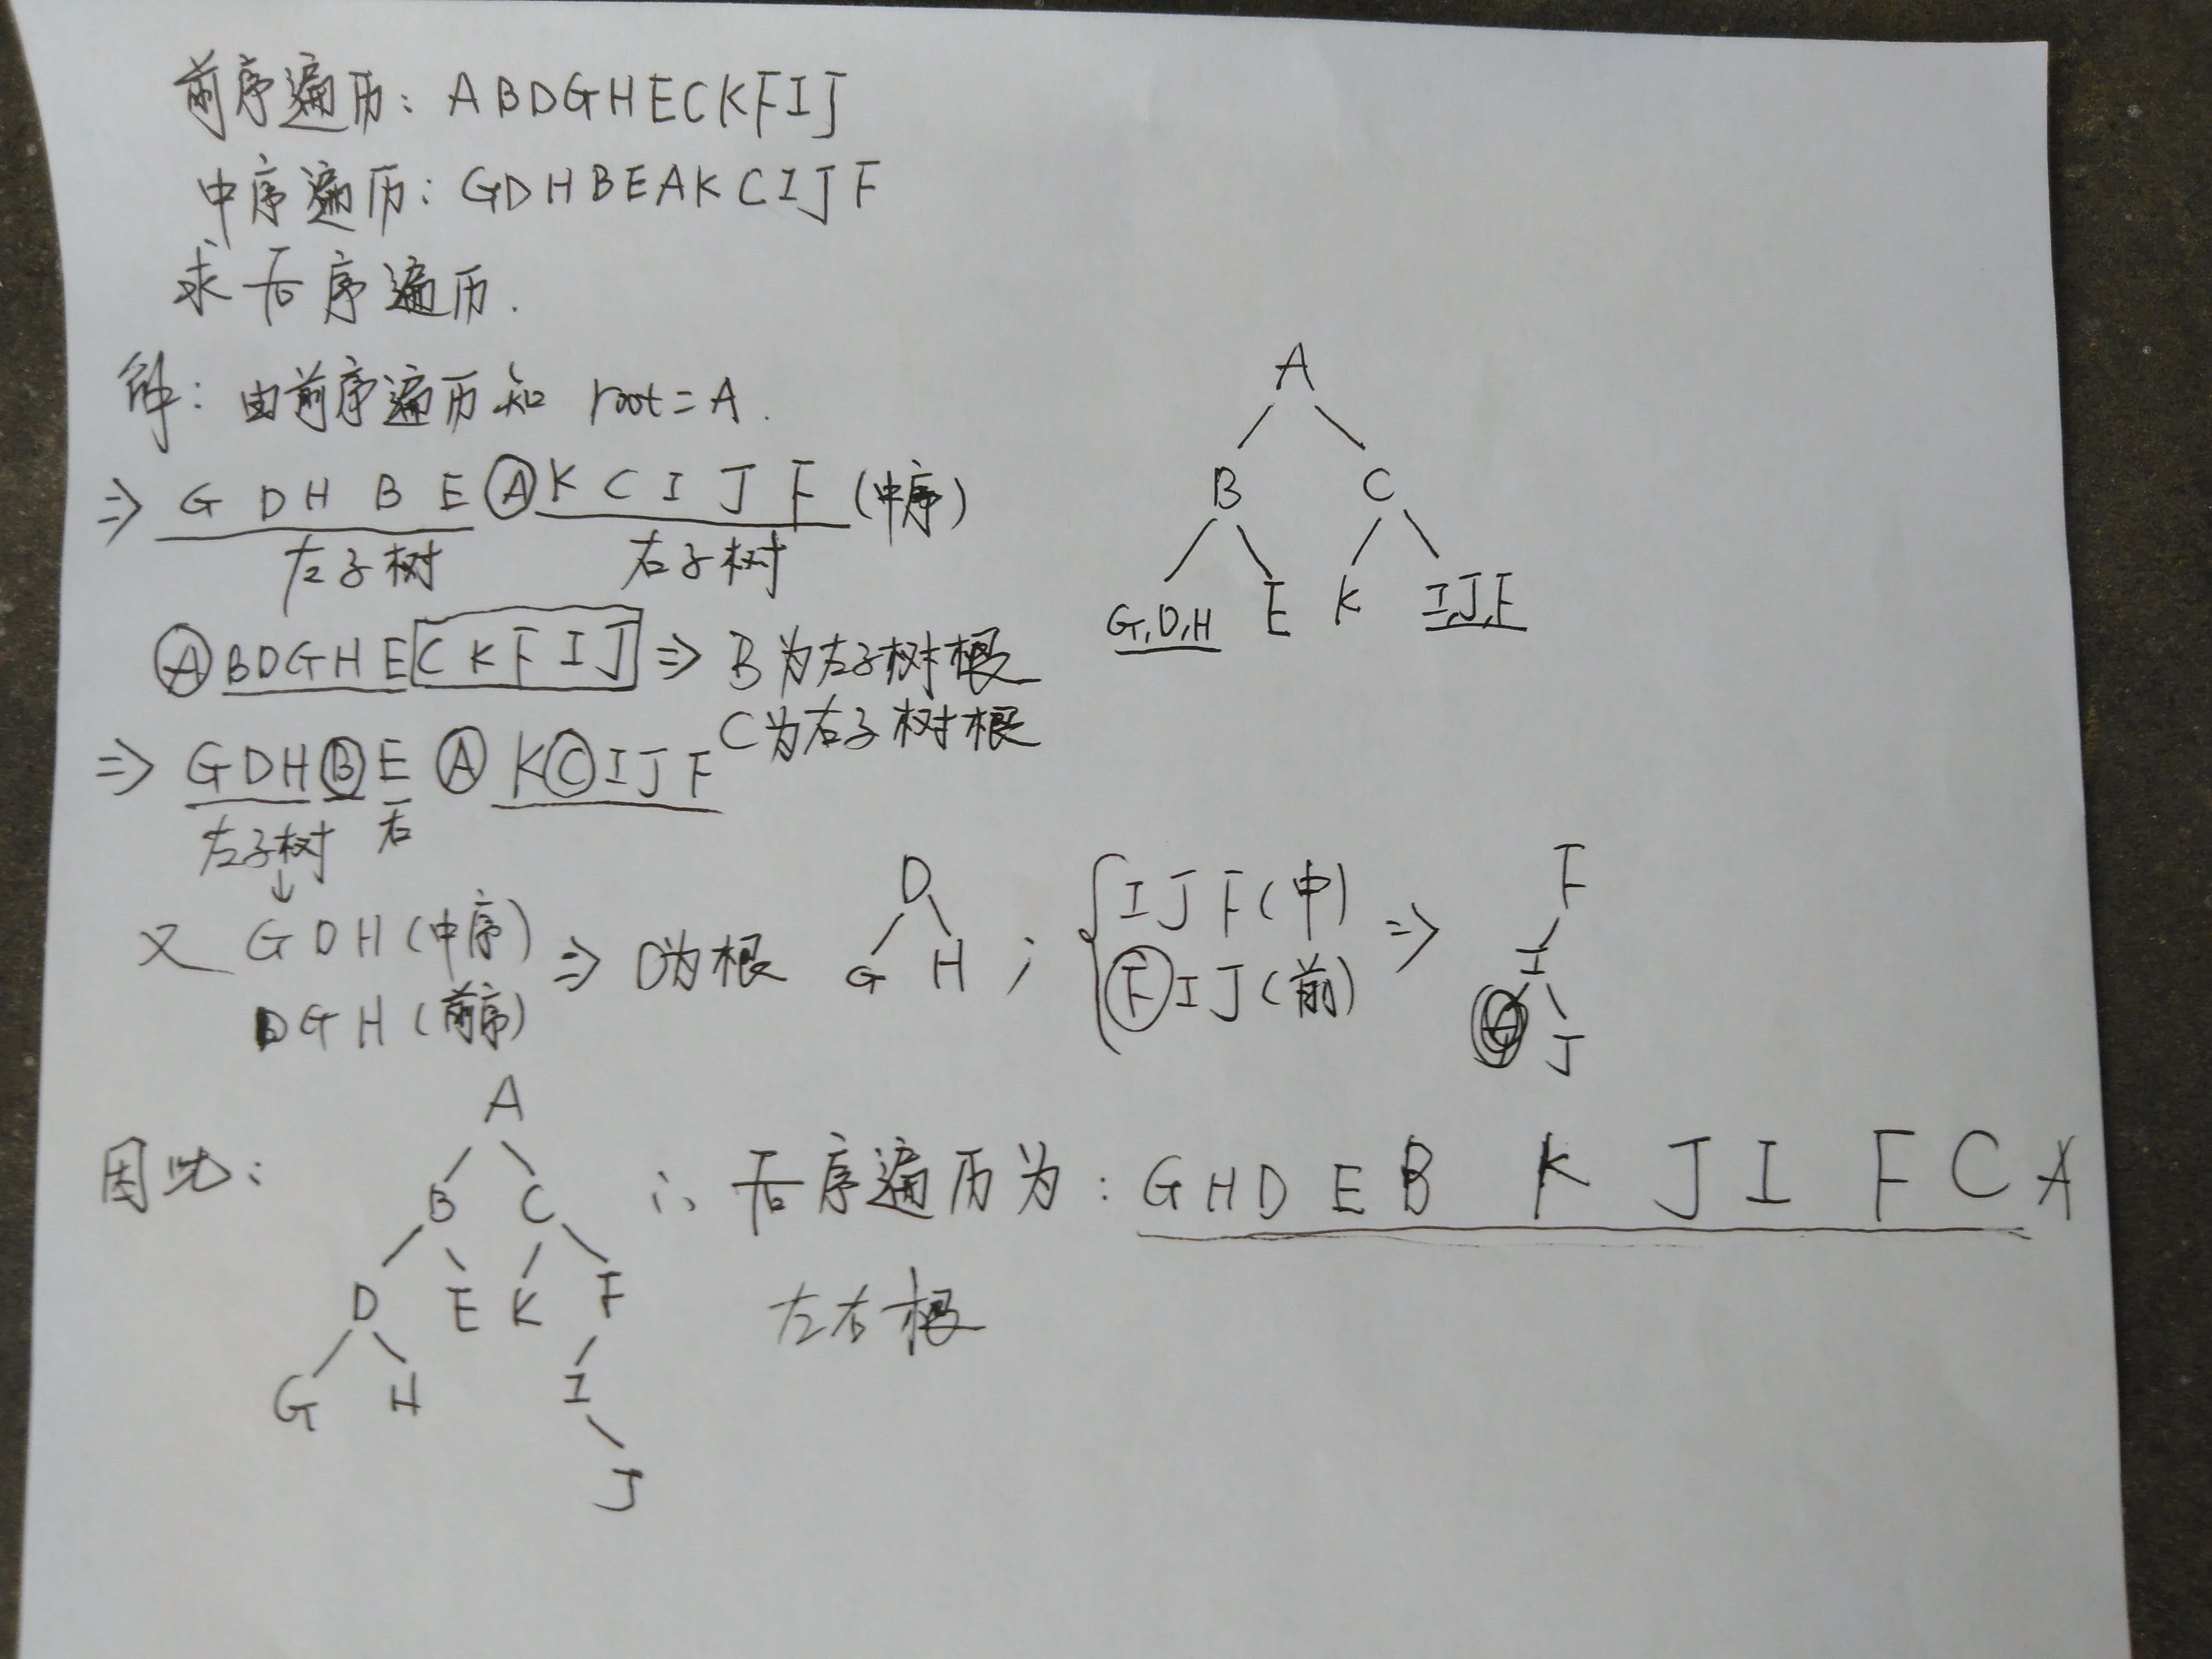 前序遍历: ABDGHECKFIJ
中序遍历: GDHBEAKCIJF
求后序遍历.
解: 由前序遍历知 root=A.
A
B C
G,D,H E K I,J,F
⇒ G D H B E A K C I J F (中序)
左子树 右子树
A BDGHE CKFIJ ⇒ B为左子树根
C为右子树根
⇒ GDHBE A KCIJF
左子树 右
↓
又 GDH(中序)
DGH(前序)
⇒ D为根
D
G H ;
IJF(中)
FIJ(前) ⇒
F
I
J
因此:
A
B C
D E K F
G H I
J
∴ 后序遍历为: GHDEB K J I F C A
左右根